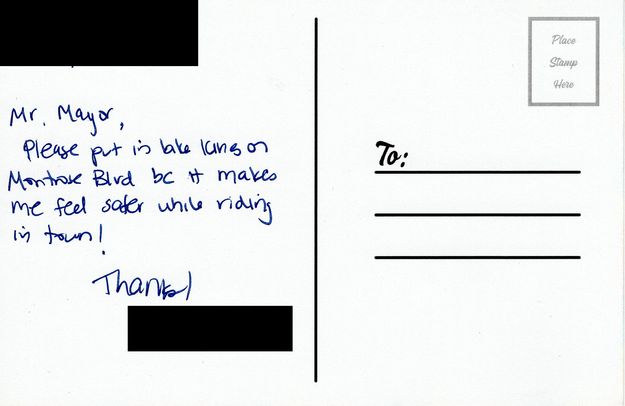 Mr. Mayor,
Please put in bike lanes on
Montrose Blvd bc it makes
me feel safer while riding
in town!
Thanks!
Place
Stamp
Here
To: